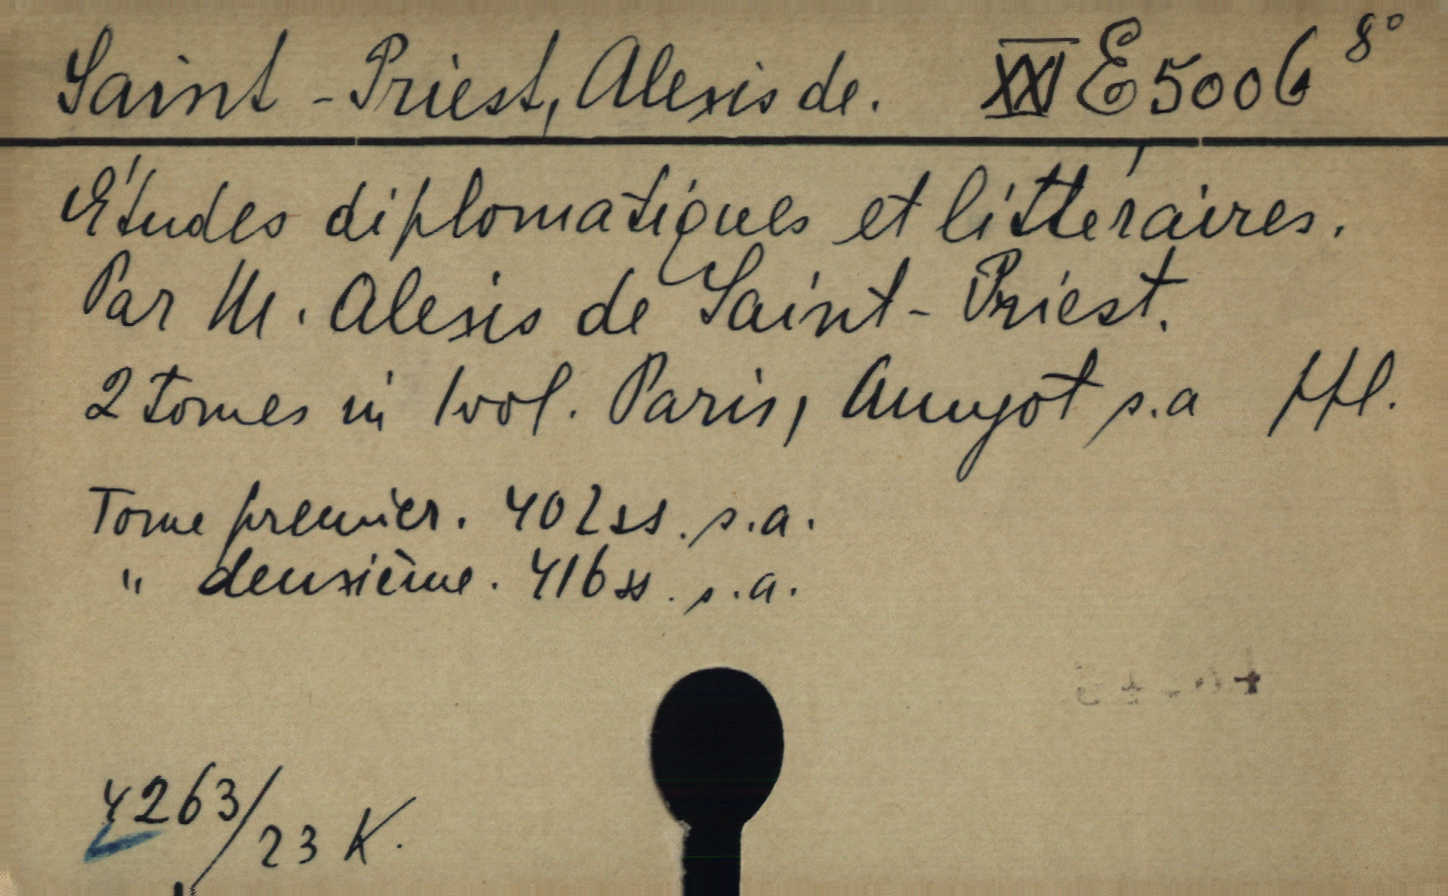 Saint-Priest, Alexis de. XXI E 5006 8°
Études diplomatiques et littéraires.
Par M. Alexis de Saint-Priest.
2 tomes in 1 vol. Paris, Amyot s.a ffl.
Tome premier. 402 ss. s.a.
" deuxième. 416 ss. s.a.
4263/23 K.